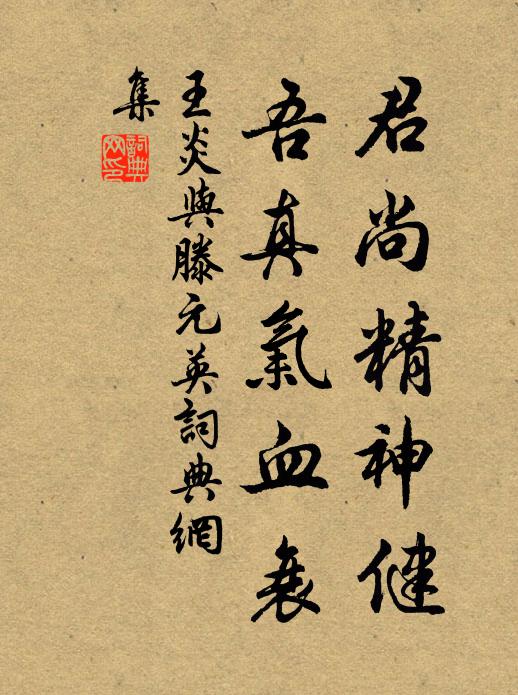 君尚精神健
吾真氣血衰
王炎與滕元英詞典網
集
詞典網印